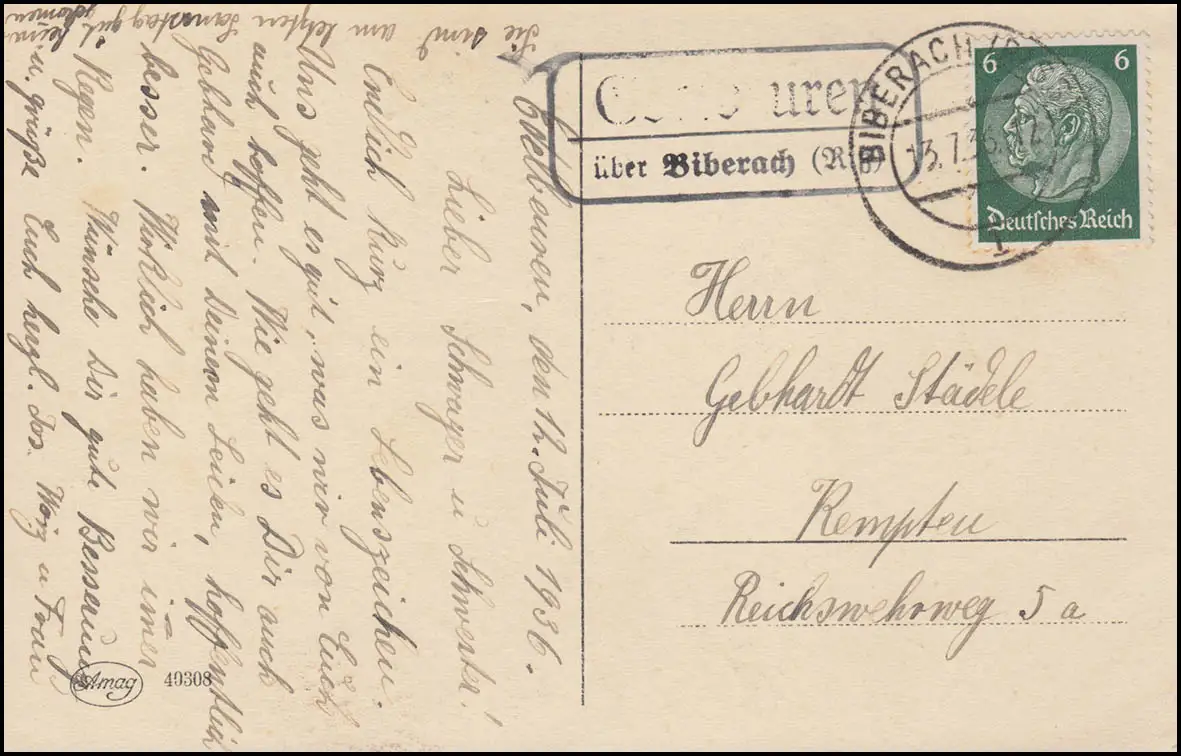 Edelbeuren, den 12. Juli 1936.
Lieber Schwager u Schwester!
Endlich kurz ein Lebenszeichen.
Uns geht es gut, was wir von Euch
auch hoffen. Wie geht es Dir auch
Gebhard mit Deinem Leiden, hoffentlich
besser. Wirklich haben wir im̄er
Regen. Wünsche Dir gute Besserung
u. grüße Euch herzl. Jos. u Frau
Sie sind am letzten Samstag gut heim
gekomen
über Biberach
BIBERACH
13.7.36
1
6 6
Deutsches Reich
Herrn
Gebhardt Städele
Kempten
Reichswehrweg 5 a
Amag 40308